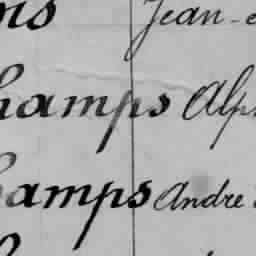 ns Jean-
hamps Alp
hamps Andre